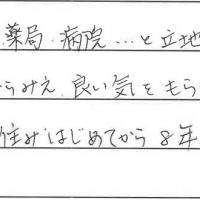 薬局・病院…と立地
らみえ、良い気をもら
住みはじめてから8年